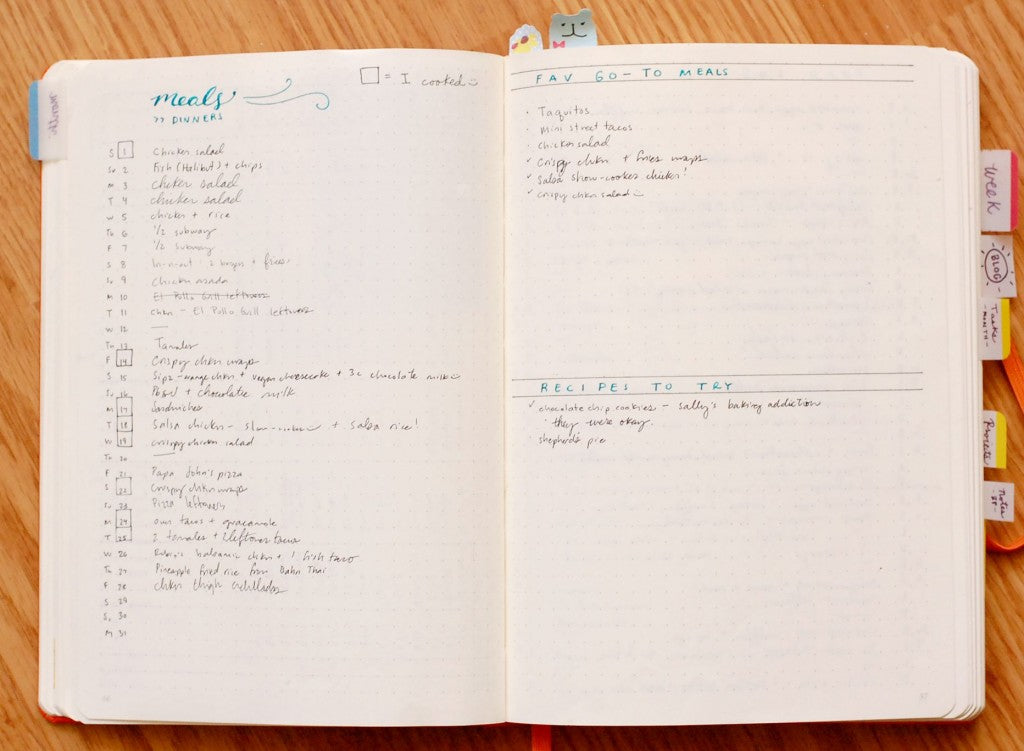 □ = I cooked
meals
>> DINNERS
S 1 Chicken salad
Su 2 Fish (Halibut) + chips
M 3 chicken salad
T 4 chicken salad
W 5 chicken + rice
Th 6 1/2 subway
F 7 1/2 subway
S 8 In-n-out - 2 burgers + fries
Su 9 Chicken asada
M 10 El Pollo Grill leftovers
T 11 chkn - El Pollo Grill leftovers
W 12 —
Th 13 Tamales
F 14 Crispy chkn wraps
S 15 orange chkn + vegan cheesecake + chocolate milk
Su 16 + chocolate milk
M 17 Sandwiches
T 18 Salsa chicken - + salsa rice!
W 19 crispy chicken salad
Th 20 —
F 21 Papa John's pizza
S 22 Crispy chkn wraps
Su 23 Pizza leftovers
M 24 own tacos + guacamole
T 25 2 tamales + 2 leftover tacos
W 26 balsamic chkn + 1 fish taco
Th 27 Pineapple fried rice from Bahn Thai
F 28 chkn thigh
S 29
S, 30
M 31
FAV GO-TO MEALS
· Taquitos
· mini street tacos
· chicken salad
✓ Crispy chkn + fries wraps
✓ Salsa slow-cooker chicken!
✓ crispy chkn salad
RECIPES TO TRY
✓ chocolate chip cookies - sally's baking addiction
· they were okay.
· shepherd's pie
week
BLOG
Tasks
-MONTH-
Notes